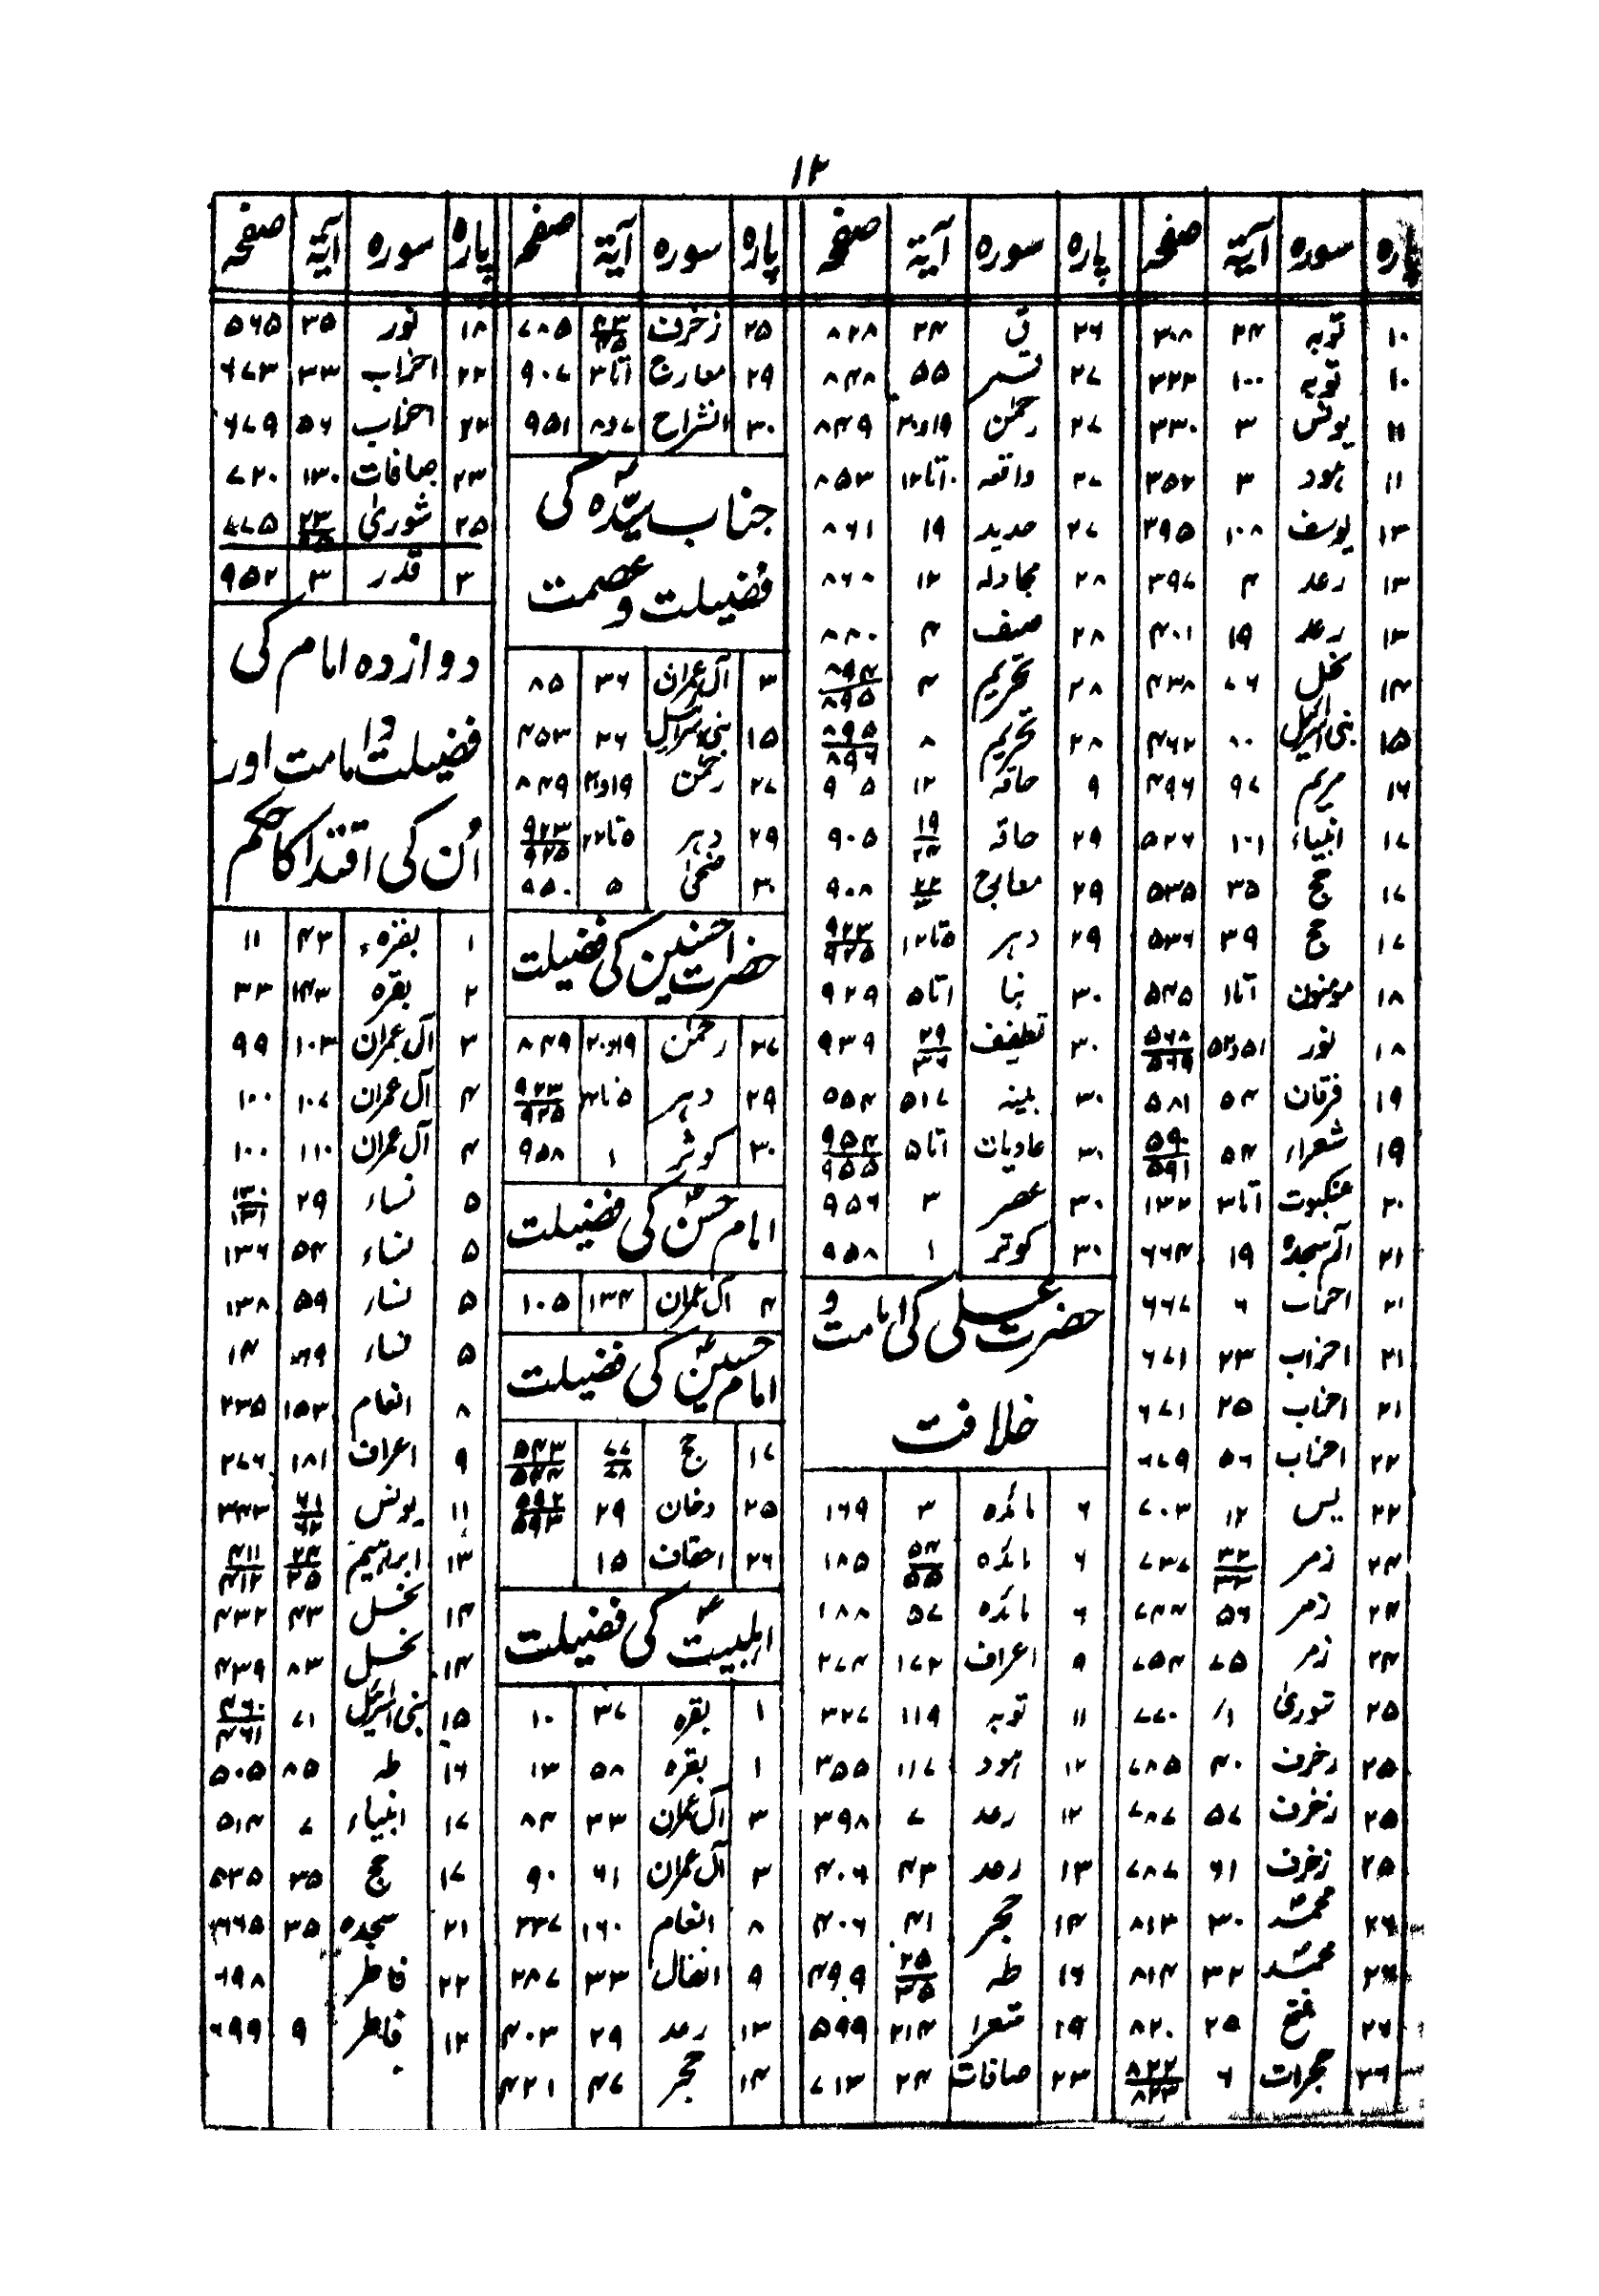 ۱۲
پارہ سورہ آیۃ صفحہ
۱۰ توبہ ۲۴ ۳۰۸
۱۰ توبہ ۱۰۰ ۳۲۳
۱۱ یونس ۳ ۳۳۰
۱۱ ہود ۳ ۳۵۲
۱۳ یوسف ۱۰۸ ۳۹۵
۱۳ رعد ۴ ۳۹۷
۱۳ رعد ۱۹ ۴۰۱
۱۴ نحل ۷۶ ۴۳۸
۱۵ بنی اسرائیل ۸۰ ۴۶۲
۱۶ مریم ۹۷ ۴۹۶
۱۷ انبیاء ۱۰۱ ۵۲۶
۱۷ حج ۳۵ ۵۳۵
۱۷ حج ۳۹ ۵۳۶
۱۸ مومنون ۱تا۱ ۵۴۵
۱۸ نور ۵۱و۵۲ ۵۶۸/۵۶۹
۱۹ فرقان ۵۴ ۵۸۱
۱۹ شعراء ۵۴ ۵۹۰/۵۹۱
۲۰ عنکبوت ۱تا۳ ۱۳۲
۲۱ الم سجدہ ۱۹ ۶۶۴
۲۱ احزاب ۶ ۶۶۷
۲۱ احزاب ۲۳ ۶۷۱
۲۱ احزاب ۲۵ ۶۷۱
۲۲ احزاب ۵۶ ۶۷۹
۲۲ یس ۱۲ ۷۰۳
۲۴ زمر ۳۲/۳۳ ۷۳۷
۲۴ زمر ۵۶ ۷۴۴
۲۴ زمر ۷۵ ۷۵۴
۲۵ شوریٰ ۱/ ۷۷۰
۲۵ زخرف ۴۰ ۷۸۵
۲۵ زخرف ۵۷ ۷۸۷
۲۵ زخرف ۶۱ ۷۸۷
۲۶ محمد ۳۰ ۸۱۳
۲۶ محمد ۳۲ ۸۱۴
۲۶ فتح ۲۵ ۸۲۰
۲۶ حجرات ۶ ۸۲۲/۸۲۳
پارہ سورہ آیۃ صفحہ
۲۶ ق ۲۴ ۸۲۸
۲۷ قمر ۵۵ ۸۴۸
۲۷ رحمٰن ۱۹و۲۰ ۸۴۹
۲۷ واقعہ ۱۰تا۱۲ ۸۵۳
۲۷ حدید ۱۹ ۸۶۱
۲۸ مجادلہ ۱۲ ۸۶۸
۲۸ صف ۴ ۸۸۰
۲۸ تحریم ۴ ۸۹۴/۸۹۵
۲۸ تحریم ۸ ۸۹۵/۸۹۶
۹ حاقہ ۱۲ ۹۰۵
۲۹ حاقہ ۱۹/۲۴ ۹۰۵
۲۹ معارج ۹۰۸
۲۹ دہر ۵تا۱۲ ۹۲۳/۹۲۵
۳۰ نبا ۱تا۵ ۹۲۹
۳۰ تطفیف ۲۹/۳۶ ۹۳۹
۳۰ بینہ ۵۱۷ ۵۵۴
۳۰ عادیات ۱تا۵ ۹۵۴/۹۵۵
۳۰ عصر ۳ ۹۵۶
۳۰ کوثر ۱ ۹۵۸
حضرت علی کی امامت و
خلافت
۶ مائدہ ۳ ۱۶۹
۶ مائدہ ۵۴/۵۵ ۱۸۵
۶ مائدہ ۵۷ ۱۸۸
۹ اعراف ۱۷۲ ۲۷۴
۱۱ توبہ ۱۱۹ ۳۲۷
۱۲ ہود ۱۱۷ ۳۵۵
۱۲ رعد ۷ ۳۹۸
۱۳ رعد ۴۳ ۴۰۶
۱۴ حجر ۴۱ ۴۰۶
۱۶ طہ ۲۵/۳۵ ۴۹۹
۱۹ شعرا ۲۱۴ ۵۹۹
۲۳ صافات ۲۴ ۷۱۳
پارہ سورہ آیۃ صفحہ
۲۵ زخرف ۴۳/۴۵ ۷۸۵
۲۹ معارج ۱تا۳ ۹۰۷
۳۰ انشراح ۷و۸ ۹۵۱
جناب سیدہؑ کی
فضیلت و عصمت
۳ آل عمران ۳۶ ۸۵
۱۵ بنی اسرائیل ۲۶ ۴۵۳
۲۷ رحمٰن ۱۹و۲۰ ۸۴۹
۲۹ دہر ۵تا۲۲ ۹۲۳/۹۲۵
۳۰ ضحیٰ ۵ ۹۵۰
حضرات حسنین کی فضیلت
۲۷ رحمٰن ۱۹و۲۰ ۸۴۹
۲۹ دہر ۹۲۳/۹۲۵
۳۰ کوثر ۱ ۹۵۸
امام حسنؑ کی فضیلت
۴ آل عمران ۱۳۴ ۱۰۵
امام حسینؑ کی فضیلت
۱۷ حج ۷۷/۷۸ ۵۴۳/۵۴۴
۲۵ دخان ۲۹ ۵۹۲/۵۹۳
۲۶ احقاف ۱۵
اہلبیتؑ کی فضیلت
۱ بقرہ ۳۷ ۱۰
۱ بقرہ ۵۸ ۱۳
۳ آل عمران ۳۳ ۸۴
۳ آل عمران ۶۱ ۹۰
۸ انعام ۱۶۰ ۲۳۷
۹ انفال ۳۳ ۲۸۷
۱۳ رعد ۲۹ ۴۰۳
۱۴ حجر ۴۷ ۴۲۱
پارہ سورہ آیۃ صفحہ
۱۸ نور ۳۵ ۵۶۵
۲۲ احزاب ۳۳ ۶۷۳
۲۲ احزاب ۵۶ ۶۷۹
۲۳ صافات ۱۳۰ ۷۲۰
۲۵ شوریٰ ۲۳/۲۵ ۷۷۵
۳ قدر ۳ ۹۵۲
دوازدہ امام کی
فضیلت و امامت اور
اُن کی اقتدا کا حکم
۱ بقرہ ۴۳ ۱۱
۲ بقرہ ۱۴۳ ۳۳
۳ آل عمران ۱۰۳ ۹۹
۴ آل عمران ۱۰۷ ۱۰۰
۴ آل عمران ۱۱۰ ۱۰۰
۵ نساء ۲۹ ۱۳۰/۱۳۱
۵ نساء ۵۴ ۱۳۶
۵ نساء ۵۹ ۱۳۸
۵ نساء ۶۹ ۱۴
۸ انعام ۱۵۳ ۲۳۵
۹ اعراف ۱۸۱ ۲۷۶
۱۱ یونس ۶۱/۶۲ ۳۴۳
۱۳ ابراہیم ۲۴/۲۵ ۴۱۱/۴۱۲
۱۴ نحل ۴۳ ۴۳۲
۱۴ نحل ۸۳ ۴۳۹
۱۵ بنی اسرائیل ۷۱ ۴۶۰/۴۶۱
۱۶ طہ ۸۵ ۵۰۵
۱۷ انبیاء ۷ ۵۱۴
۱۷ حج ۳۵ ۵۳۵
۲۱ سجدہ ۳۵ ۶۶۵
۲۲ فاطر ۶۹۸
۱۲ فاطر ۹ ۶۹۹